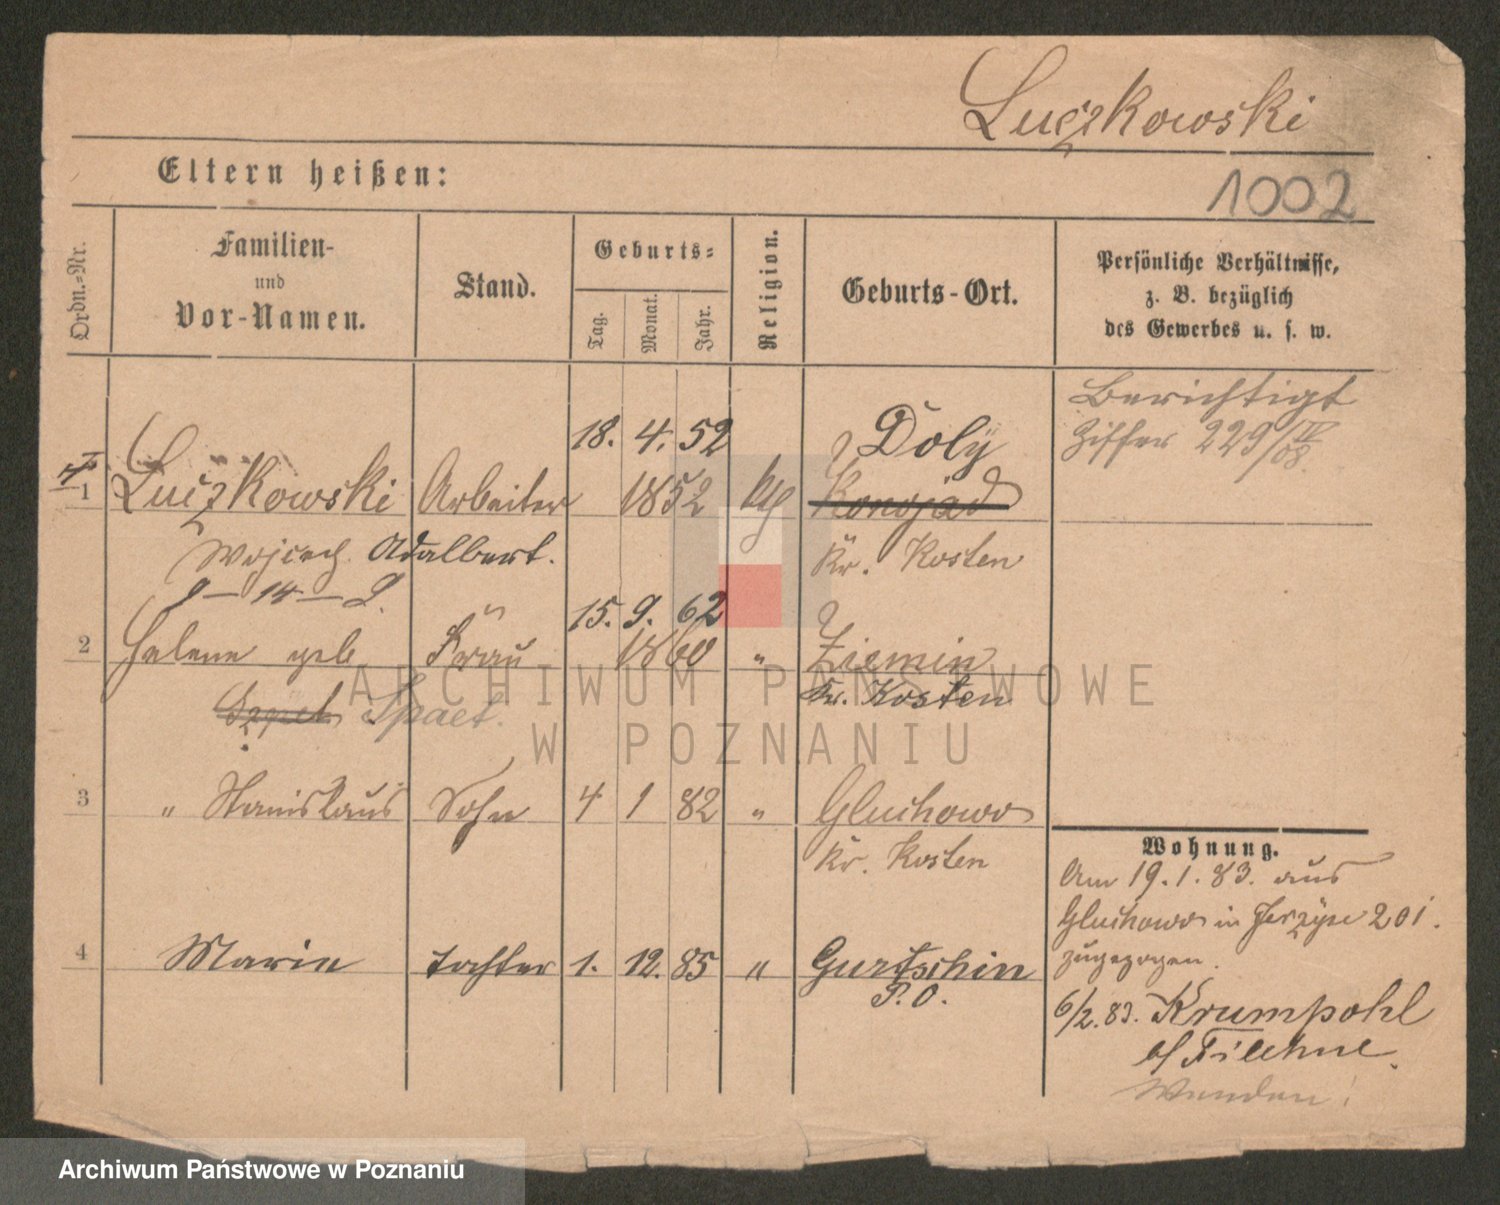 Luczkowski
Eltern heißen:
1002
Ordn.=Nr.
Familien-
und
Vor-Namen.
Stand.
Geburts=
Tag.
Monat.
Jahr.
Religion.
Geburts-Ort.
Persönliche Verhältnisse,
z. B. bezüglich
des Gewerbes u. s. w.
Berichtigt
Ziffer 229/IV 08.
18. 4. 52 Doly
1 Luczkowski Arbeiter 1852 kth Konojad
Wojciech Adalbert. Kr. Kosten
15. 9. 62
2 Helene geb Frau 1860 " Ziemin
Spaet. Kr. Kosten
3 " Stanislaus Sohn 4 1 82 " Gluchowo
Kr. Kosten
4 Marie Tochter 1. 12. 85 " Gurtschin
P. O.
Wohnung.
Am 19. 1. 83. aus
Gluchowo in Jerzyce 201.
zugezogen.
6/2. 83. Krumpohl
b/ Filehne.
Wenden!
ARCHIWUM PAŃSTWOWE
W POZNANIU
Archiwum Państwowe w Poznaniu